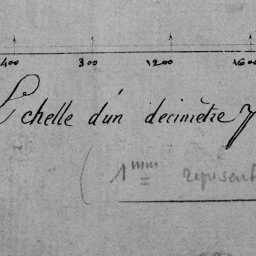 400 800 1200 1600
Echelle d'un decimètre p
( 1mm représent